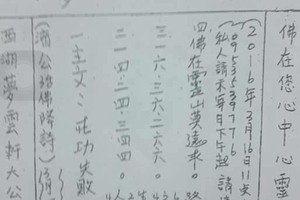 佛在您心中心靈
(2016年3月16日11支
(0953539776
私人請示每日下午起請
四佛在靈山莫遠求。
三一六.三六.三六六。
二一四.二四.三四四。
一主文:.茈功失敗
(濟公活佛降詩)
西湖夢雲軒大公